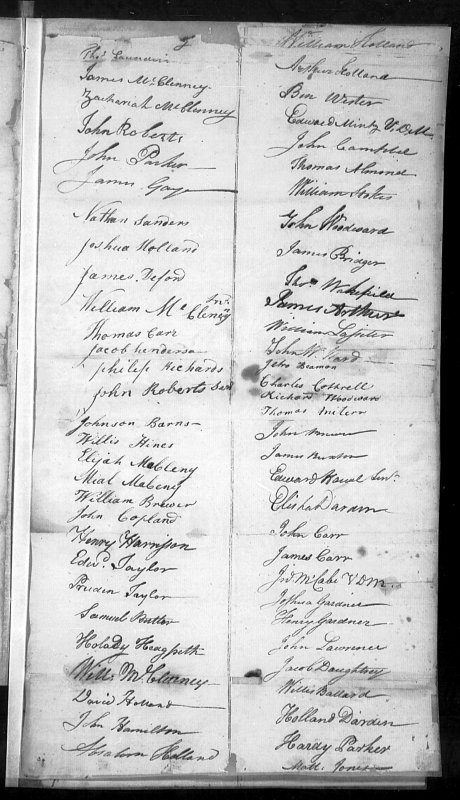 James McClenney
Zachariah McClenney
John Roberts
John Parker
James Gay
Nathan Sanders
Joshua Holland
James Deford
William McCleney Junr
Thomas Carr
Jacob Henderson
philip Richards
John Roberts Senr
Johnson Barns
Willis Hines
Elijah McCleny
Mial McCleny
William Brewer
John Copland
Henry Harrison
Edwd Taylor
Pruden Taylor
Samuel Butler
Holady Heagpeth
Wills McClenney
David Holland
John Hamilton
Abraham Holland
William Holland
Arthur Holland
Ben Wester
Edward Mintz V.D.M.
John Campbel
Thomas Almond
William Stokes
John Woodward
James Bridger
Thos Wakefield
James Arthur
William Lasiter
John W. Ward
Jethro Deamon
Charles Cothrell
Richard Woodward
Thomas Milern
John
James Buxton
Edward Senr
Elisha Darden
John Carr
James Carr
Jno McCabe V.D.M.
Joshua Gardner
Henry Gardner
John Lawrence
Jacob Daughtrey
Willis Ballard
Holland Darden
Hardy Parker
Matt. Jones